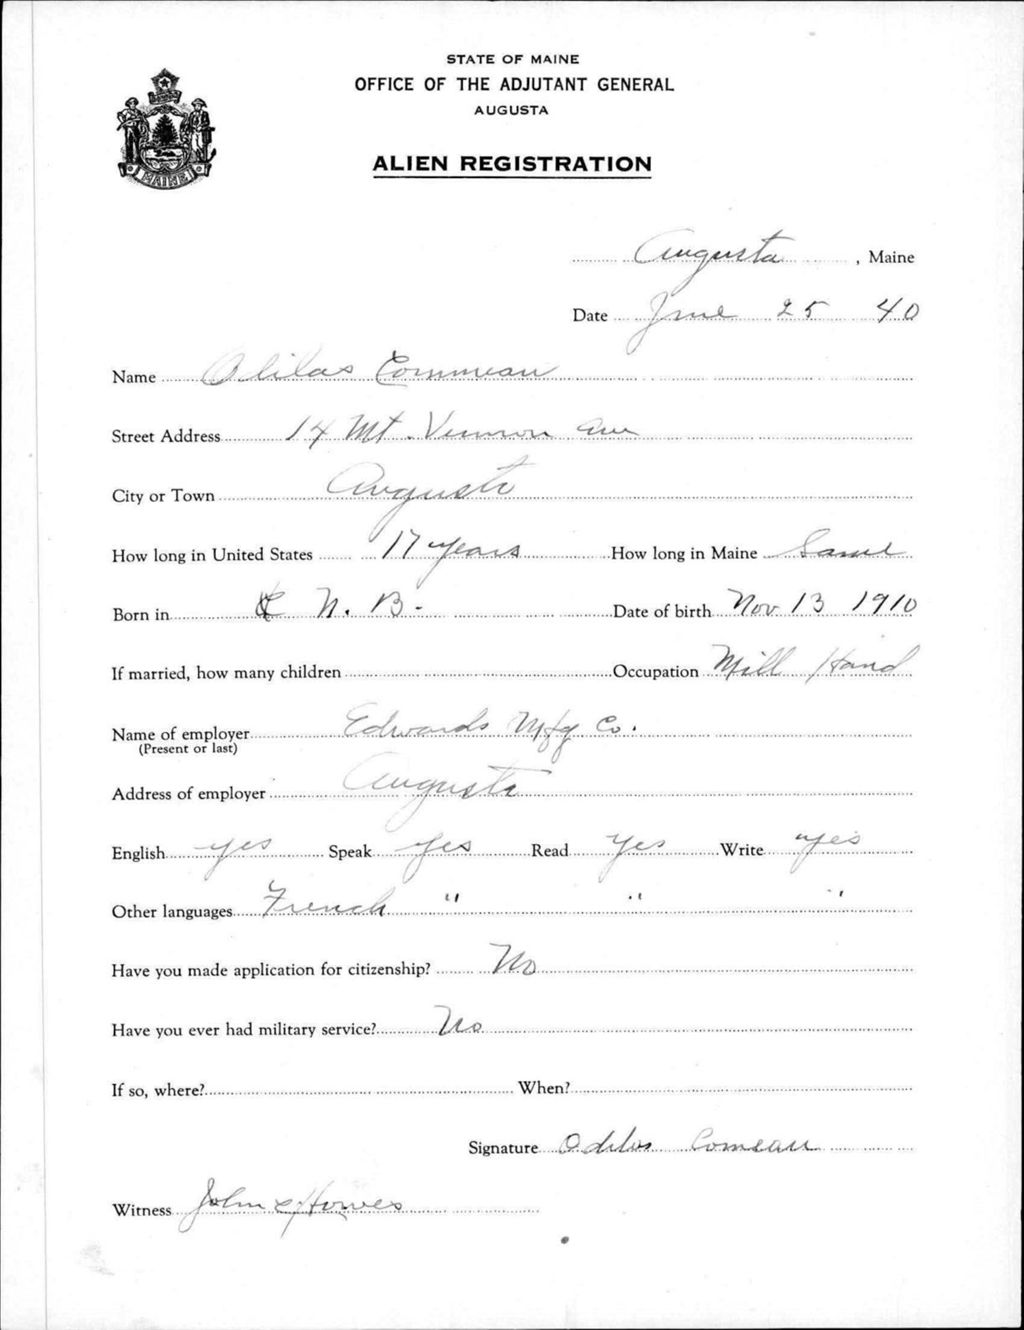 STATE OF MAINE
OFFICE OF THE ADJUTANT GENERAL
AUGUSTA
ALIEN REGISTRATION
MAINE
Augusta, Maine
Date June 25 40
Name Olilas Commeau
Street Address 14 Mt. Vernon Ave
City or Town Augusta
How long in United States 17 years How long in Maine Same
Born in N. B. Date of birth Nov 13 1910
If married, how many children Occupation Mill Hand
Name of employer Edwards Mfg Co.
(Present or last)
Address of employer Augusta
English yes Speak yes Read yes Write yes
Other languages French " " "
Have you made application for citizenship? No
Have you ever had military service? No
If so, where? When?
Signature Odilos Comeau
Witness John E Howes